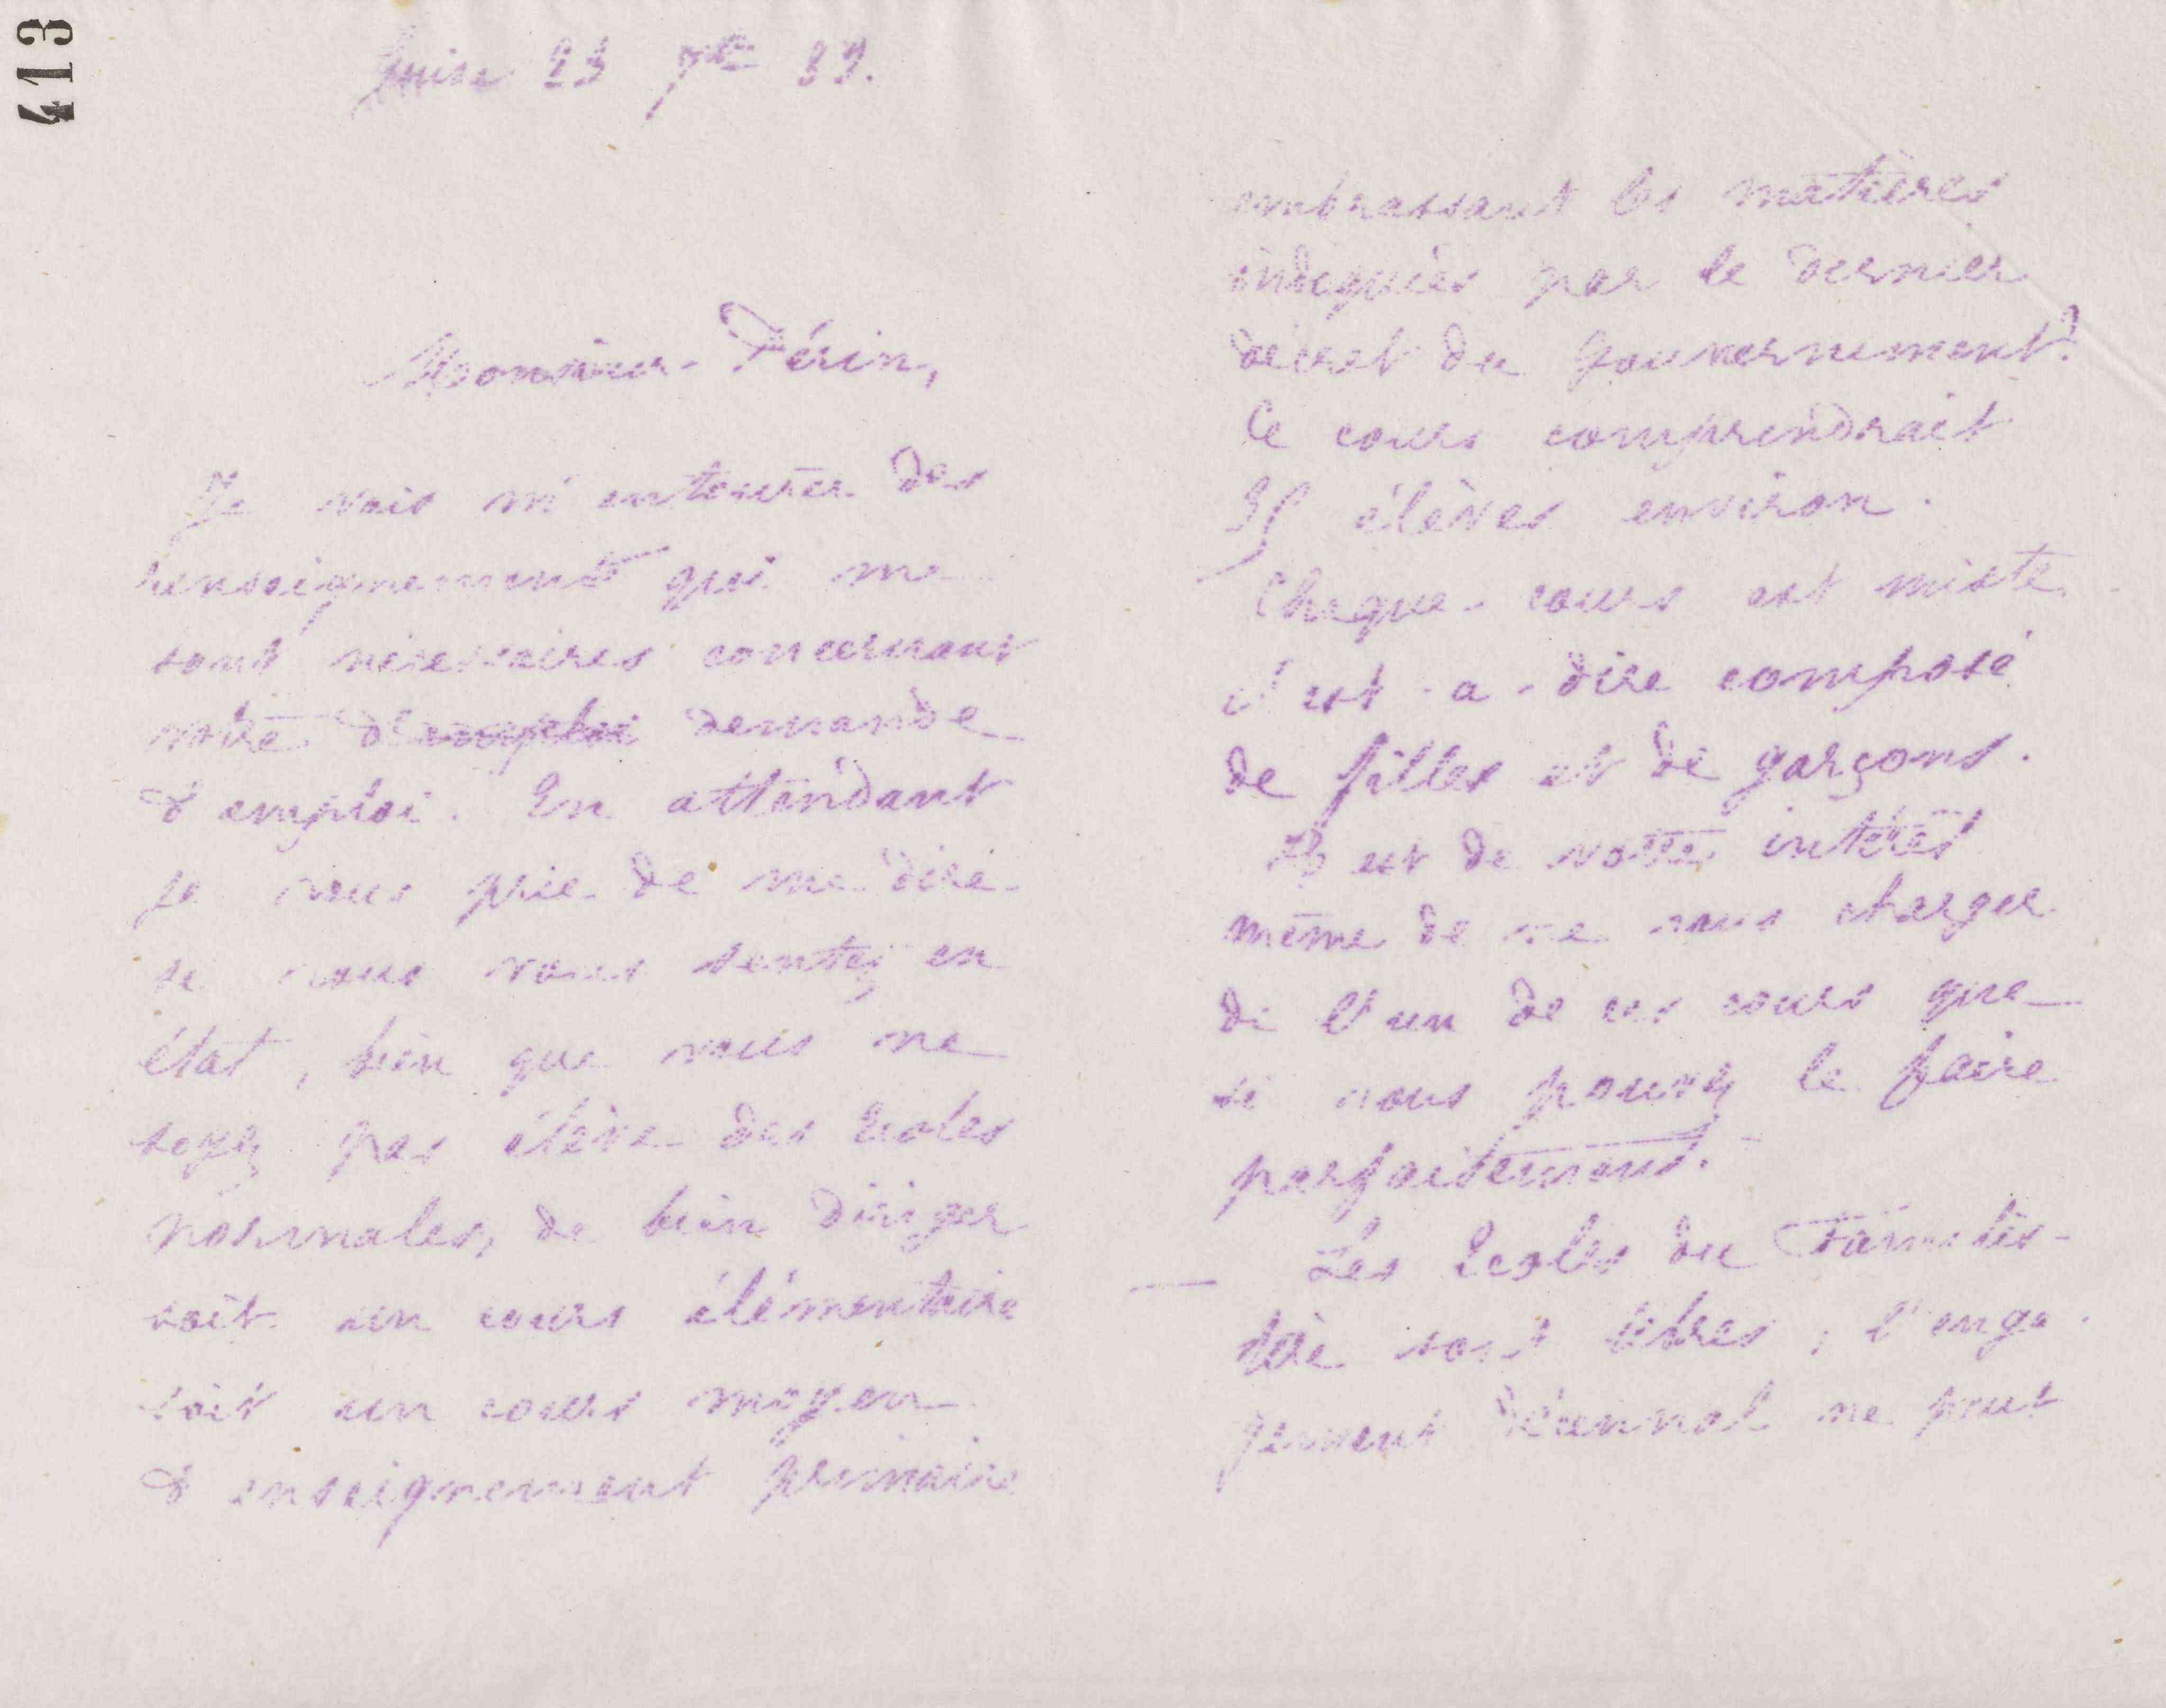 413
Guise 23 7bre 89.
Monsieur Périn,
Je vais m'entourer des
renseignements qui me
sont nécessaires concernant
votre demande
d'emploi. En attendant
je vous prie de me dire
si vous vous sentez en
état, bien que vous ne
soyez pas élève des Ecoles
normales, de bien diriger
soit un cours élémentaire
soit un cours moyen
d'enseignement primaire
embrassant les matières
indiquées par le dernier
décret du Gouvernement?
Ce cours comprendrait
élèves environ.
Chaque cours est mixte
c'est-a-dire composé
de filles et de garçons.
Il est de votre intérêt
même de ne vous charger
de l'un de ces cours que
si vous pouvez le faire
parfaitement.
Les Ecoles du Familis-
tère sont libres; l'enga-
gement décennal ne peut